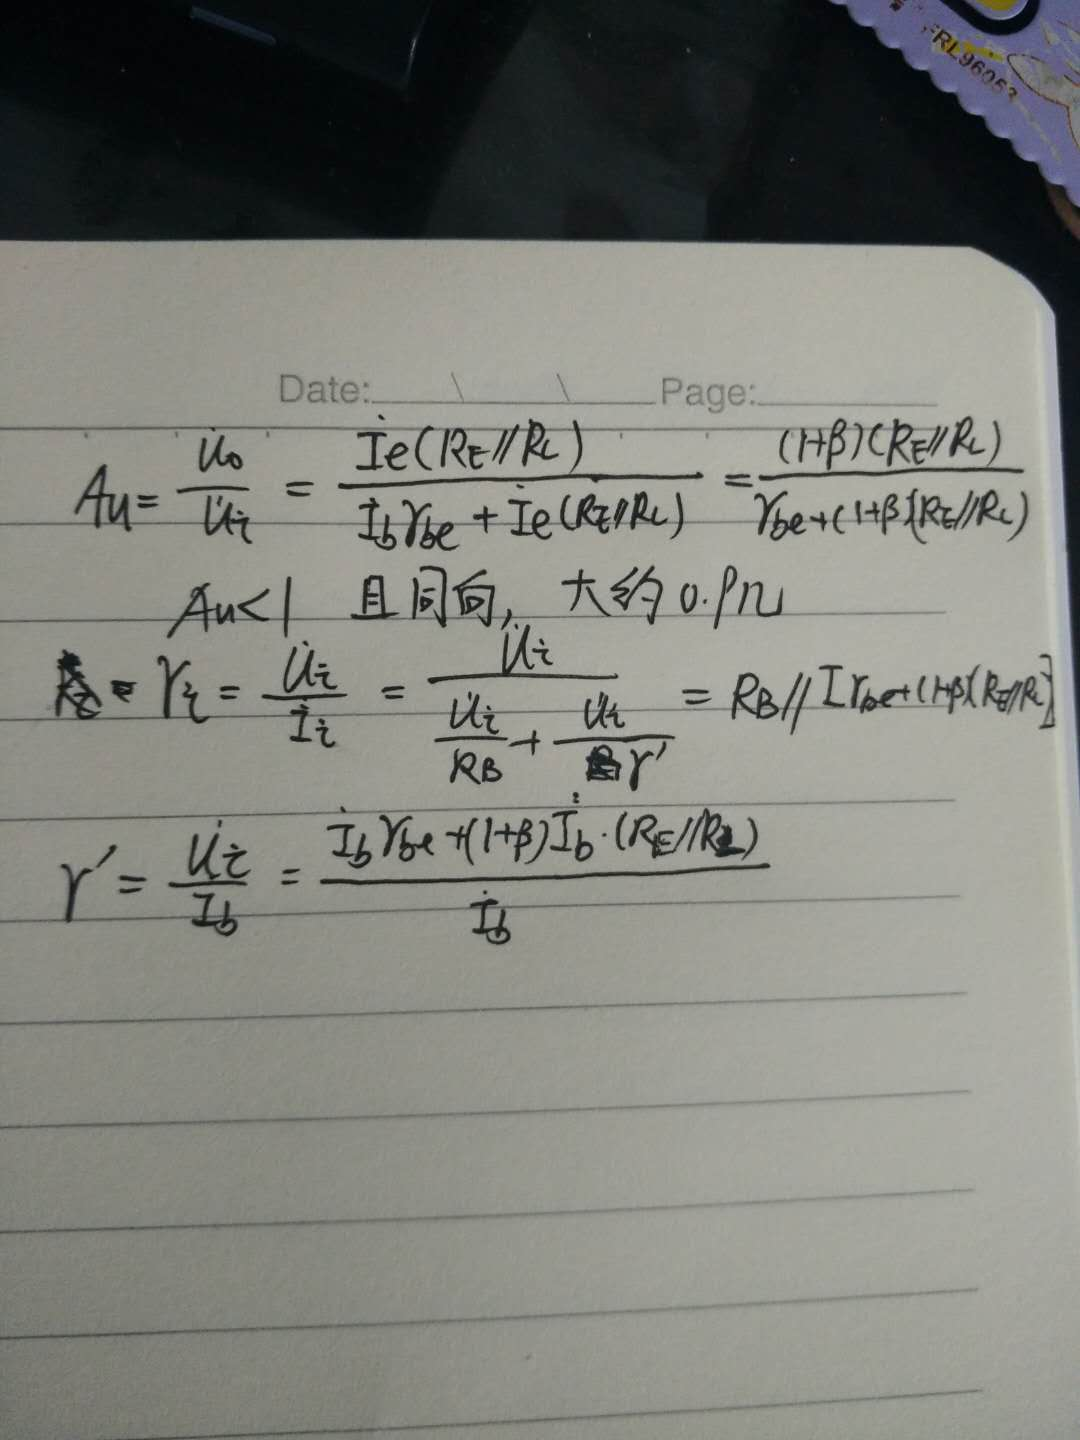 FRL96053
Date: Page:
Au = U̇o/U̇i = İe(RE//RL)/(İbrbe + İe(RE//RL)) = (1+β)(RE//RL)/(rbe+(1+β)(RE//RL))
Au<1 且同向, 大约0.9几
ri = U̇i/İi = U̇i/(U̇i/RB + U̇i/r′) = RB//[rbe+(1+β)(RE//RL)]
r′ = U̇i/Ib = (İbrbe+(1+β)İb·(RE//RL))/İb